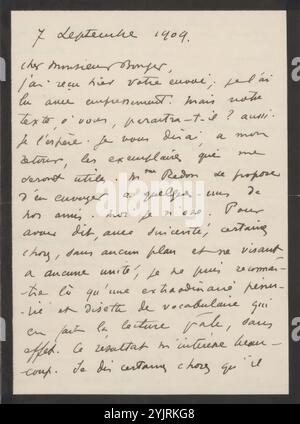 7 Septembre 1909.
cher Monsieur Bonger,
j'ai reçu hier votre envoi; je l'ai
lu avec empressement. Mais notre
texte à vous, paraîtra-t-il? aussi.
Je l'espère. Je vous dirai, à mon
retour, les exemplaires qui me
seront utile. Mme Redon se propose
d'en envoyer à quelques-uns de
nos amis. moi je n'ose. Pour
avoir dit, avec sincérité, certaines
choses, sans aucun plan et ne visant
à aucune unité, je ne puis reconnaî-
tre là qu'une extraordinaire pénu-
rie et disette de vocabulaire qui
en fait la lecture pâle, sans
effet. Ce résultat m'intéresse beau-
coup. Je dis certaines choses qu'il
alamy
Image ID: 2YJRKG8
www.alamy.com